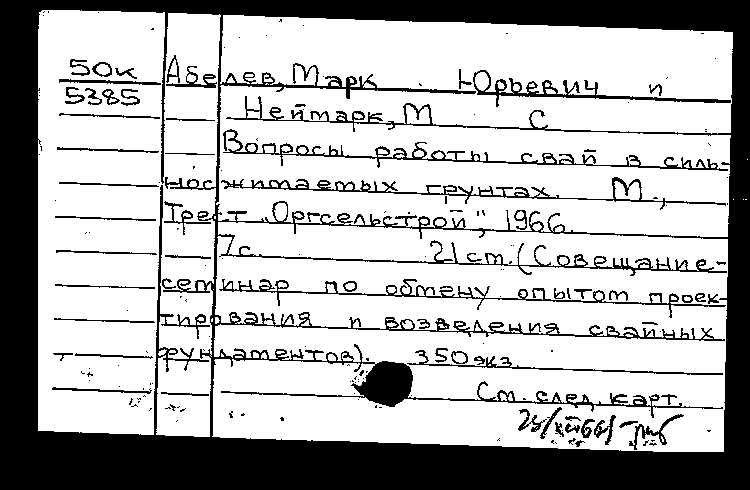 50к Абелев, Марк Юрьевич и
5385 Неймарк, М С
Вопросы работы свай в силь-
носжимаемых грунтах. М.,
Трест „Оргсельстрой", 1966.
7с. 21 cm. (Совещание-
семинар по обмену опытом проек-
тирования и возведения свайных
фундаментов). 350 экз.
См. след. карт.